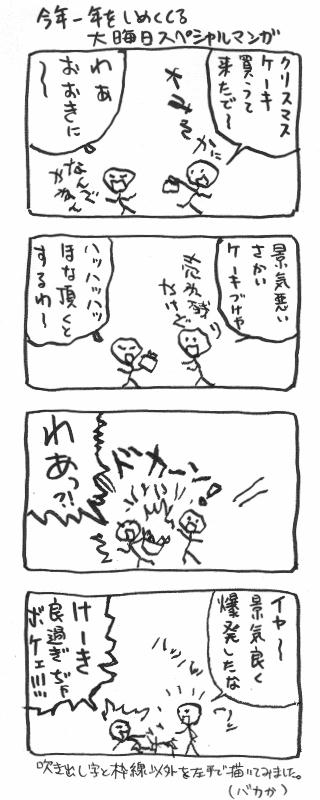 今年一年をしめくくる
大晦日スペシャルマンガ
クリスマス
ケーキ
買うて
来たで〜
大みそ
かに
わぁ
おおきに
〜
なんで
やねん
景気悪い
さかい
ケーキづけや
売れ残り
やけど
ハッハッハッ
ほな頂くと
するわ〜
ドカーン
わあっ?!
イヤ〜
景気良く
爆発したな
けーき
良過ぎぢゃ
ボケェ!!!!
吹き出し字と枠線以外を左手で描いてみました。
(バカか)